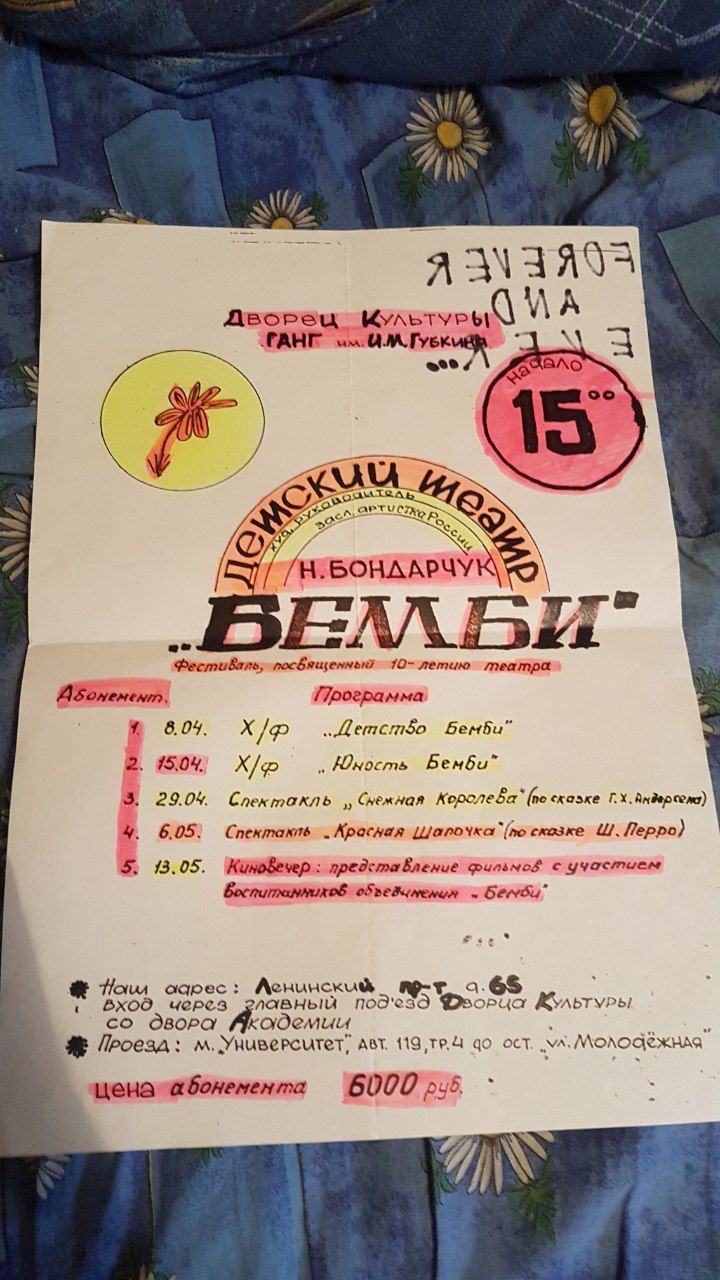 FOREVER
AND
EVER...
Дворец Культуры
ГАНГ им. И.М. Губкина
начало
15⁰⁰
Детский театр
худ. руководитель
засл. артистка России
Н. БОНДАРЧУК
„БЕМБИ"
Фестиваль, посвященный 10-летию театра
Абонемент. Программа
1. 8.04. Х/ф „Детство Бемби"
2. 15.04. Х/ф „Юность Бемби"
3. 29.04. Спектакль „Снежная Королева" (по сказке Г.Х. Андерсена)
4. 6.05. Спектакль „Красная Шапочка" (по сказке Ш. Перро)
5. 13.05. Киновечер: представление фильмов с участием
воспитанников объединения „Бемби"
Наш адрес: Ленинский пр-т д. 65
вход через главный под'езд Дворца Культуры
со двора Академии
Проезд: м. „Университет", авт. 119, тр. 4 до ост. „ул. Молодёжная"
цена абонемента 6000 руб.